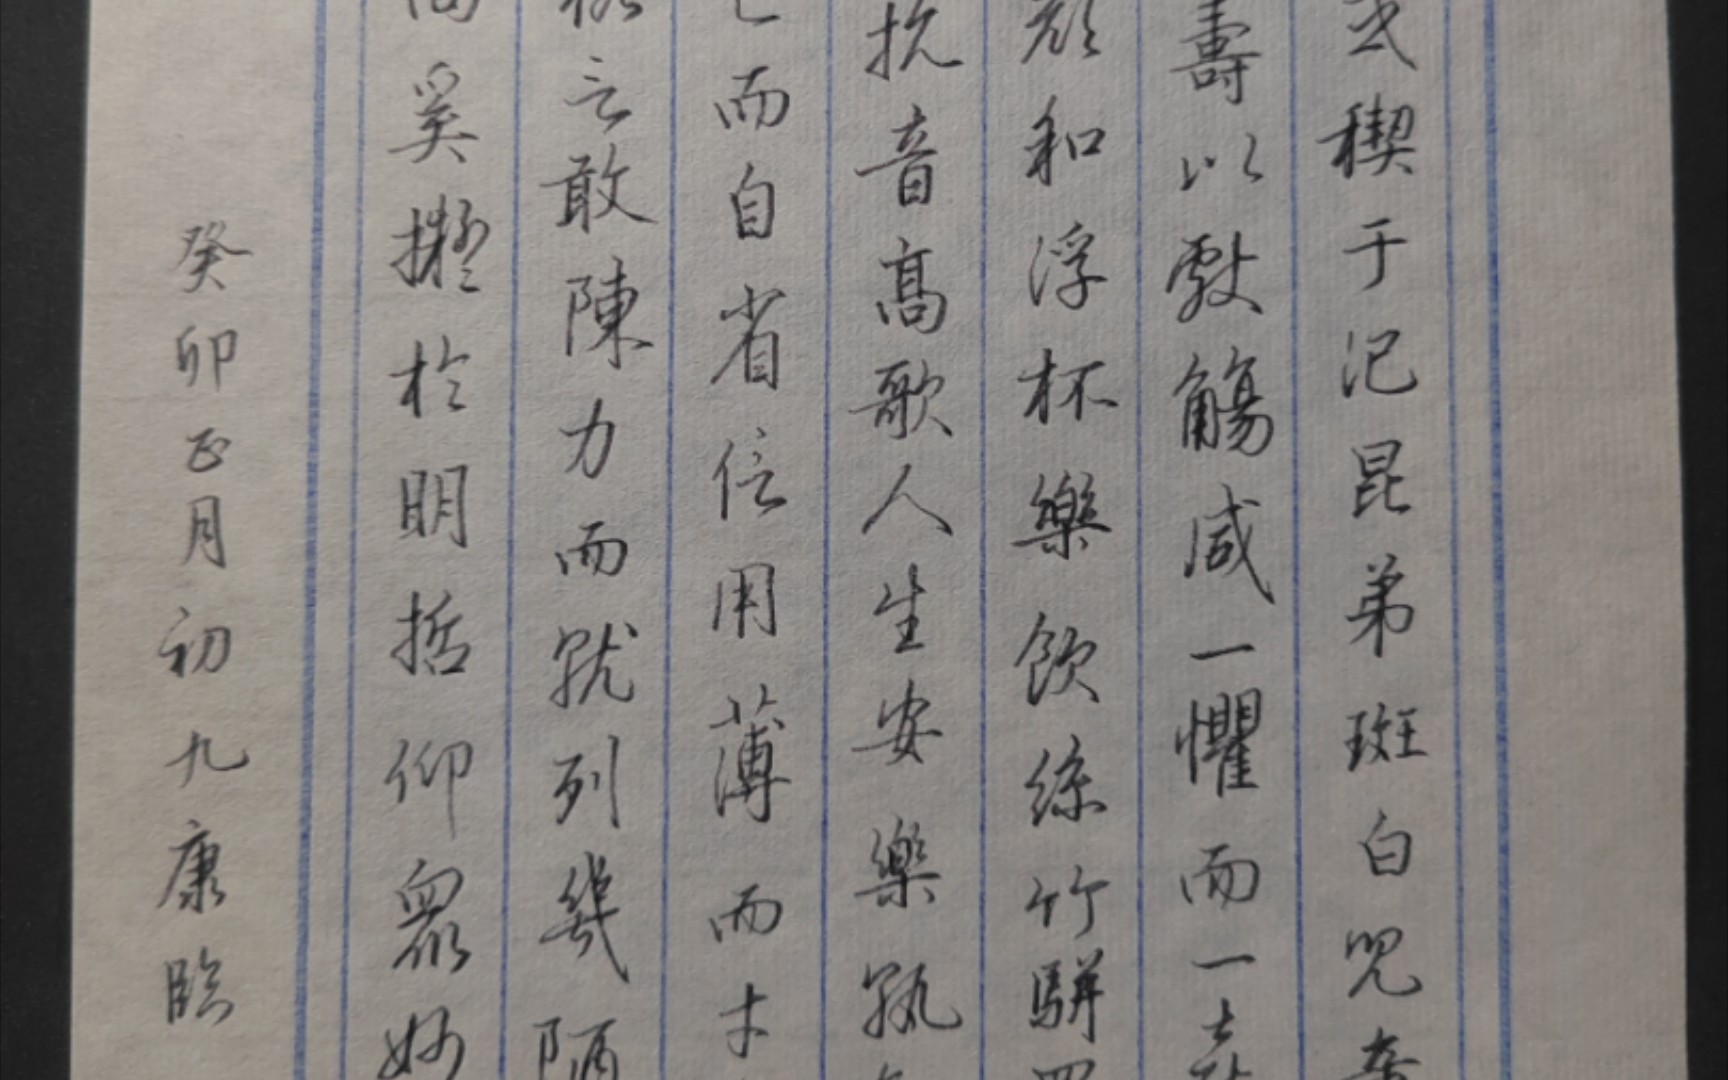 禊于汜昆弟斑白兒
壽以獻觴咸一懼而一喜
顔和浮杯樂飲絲竹駢羅
抗音高歌人生安樂孰
而自省信用薄而才
之敢陳力而就列幾陋
奚擬於明哲仰眾妙
癸卯正月初九康臨